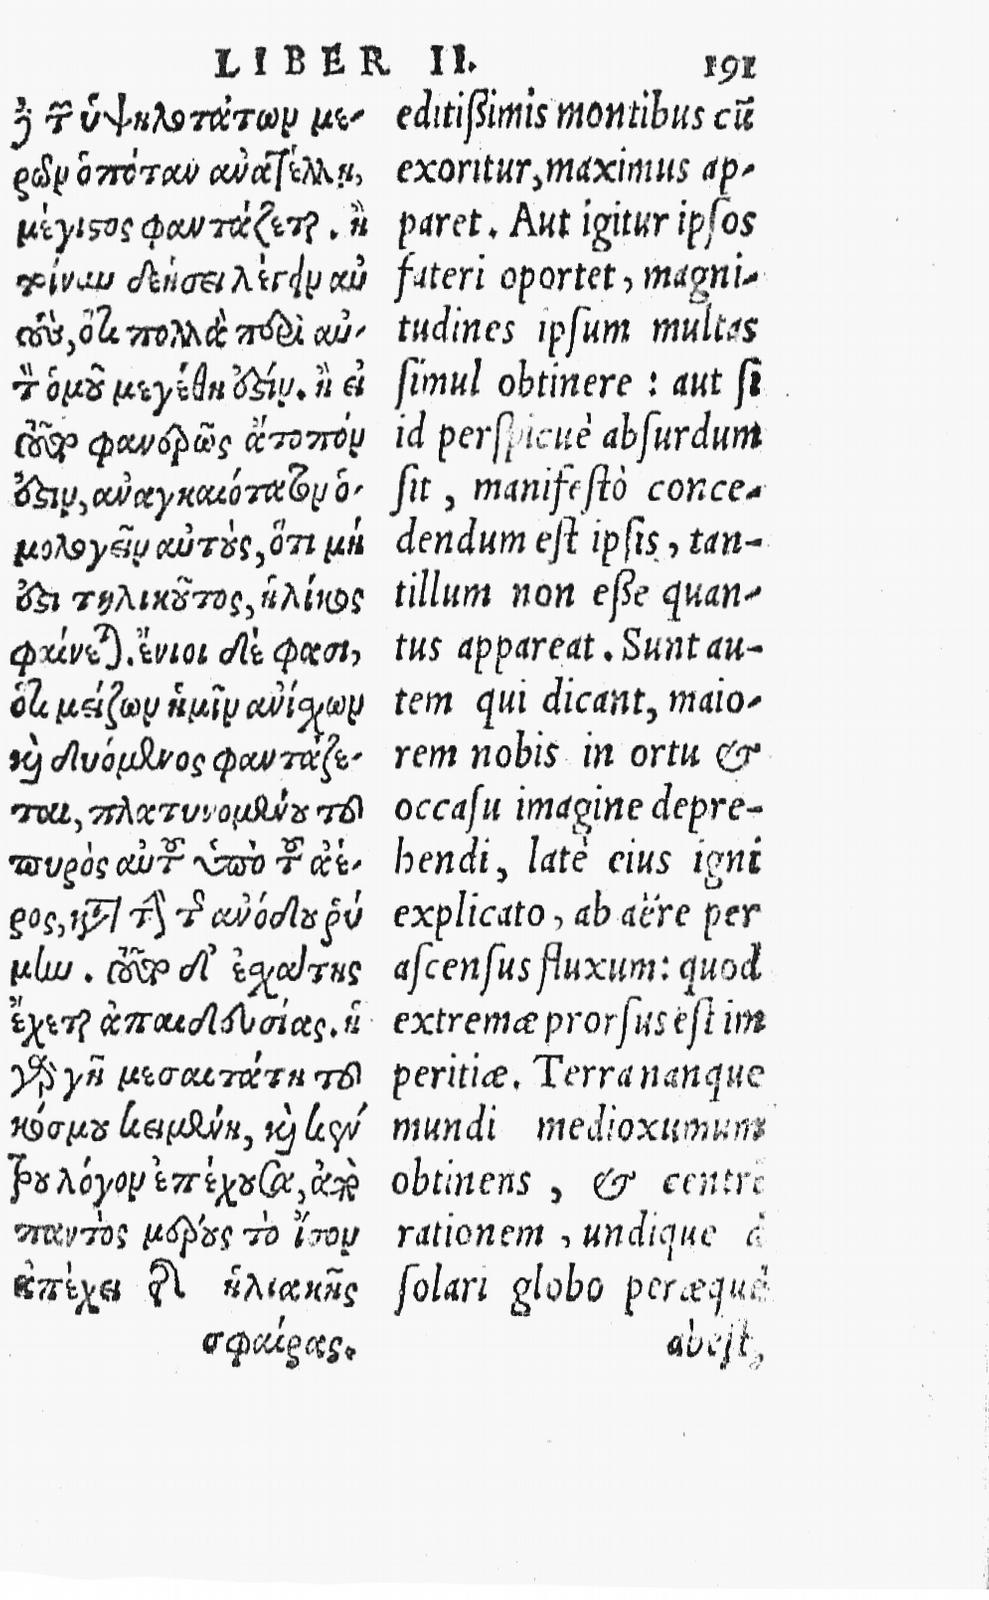 LIBER II. 191
ἢ τῶν ὑψηλοτάτων με-
ρῶν ὁπόταν ἀνατέλλῃ,
μέγιστος φαντάζεται. ἢ
δεήσει λέγειν αὐ
τοὺς, ὅτι πολλὰ περὶ αὐ-
τὸν ὁμοῦ μεγέθη ὄξιν. ἢ εἰ
τοῦτο φανερῶς ἄτοπόν
ὄξιν, ἀναγκαιότατον ὁ-
μολογεῖν αὐτοὺς, ὅτι μή
ὄξι τηλικοῦτος, ἡλίκος
φαίνεται. ἔνιοι δέ φασι,
ὅτι μείζων ἡμῖν ἀνίσχων
καὶ δυόμενος φαντάζε-
ται, πλατυνομένου τοῦ
πυρὸς αὐτοῦ ὑπὸ τοῦ ἀέ-
ρος, κατὰ τὴν τῆς ἀνόδου ῥύ
μην. τοῦτο δ' ἐσχάτης
ἔχεται ἀπαιδευσίας. ἡ
γὰρ γῆ μεσαιτάτη τοῦ
κόσμου κειμένη, καὶ κέν
τρου λόγον ἐπέχουσα, ἀπὸ
παντὸς μέρους τὸ ἴσον
ἀπέχει τῆς ἡλιακῆς
σφαίρας.
editißimis montibus cũ
exoritur, maximus ap-
paret. Aut igitur ipsos
fateri oportet, magni-
tudines ipsum multas
simul obtinere : aut si
id perspicuè absurdum
sit, manifestò conce-
dendum est ipsis, tan-
tillum non eße quan-
tus appareat. Sunt au-
tem qui dicant, maio-
rem nobis in ortu &
occasu imagine depre-
hendi, latè eius igni
explicato, ab aëre per
ascensus fluxum: quod
extremæ prorsus est im
peritiæ. Terra nanque
mundi medioxumum
obtinens, & centri
rationem, undique à
solari globo peræquè
abest,